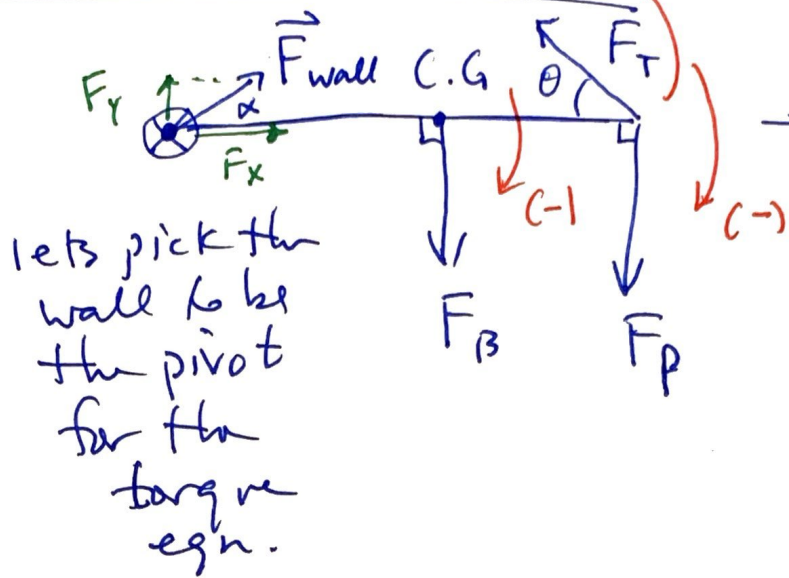 F wall C.G θ F_T
F_Y α
F_X
(-)
(-)
lets pick the
wall to be
the pivot
for the
torque
eqn.
F_B
F_P